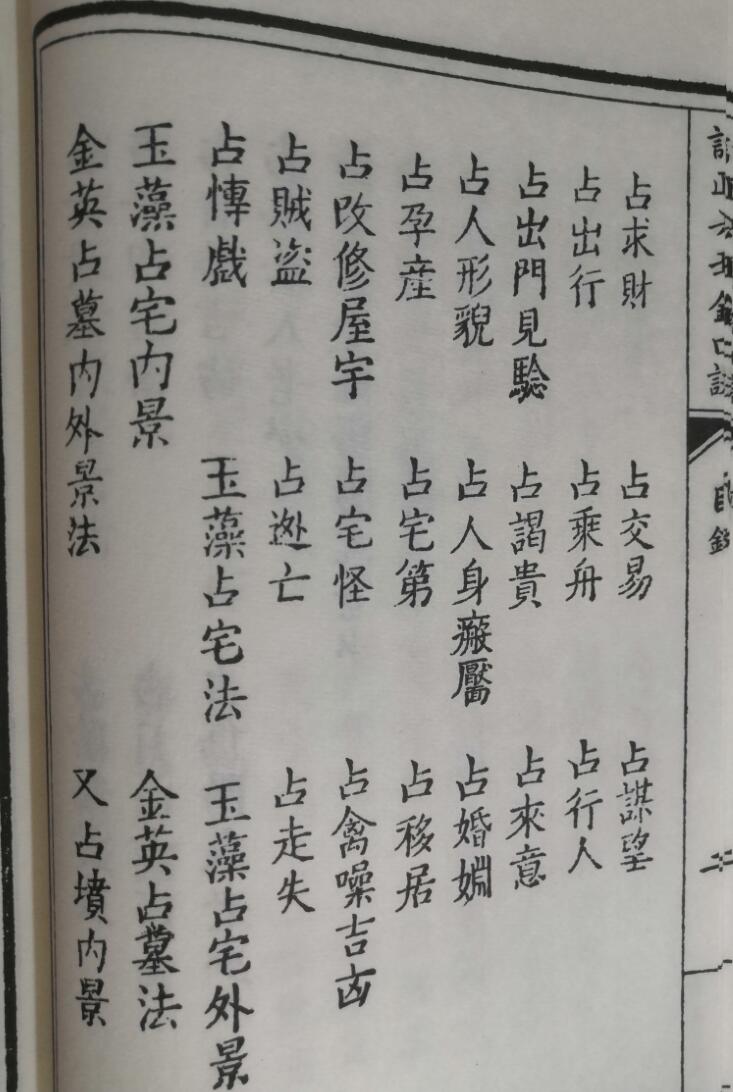 占求財 占交易 占謀望
占出行 占乘舟 占行人
占出門見驗 占謁貴 占來意
占人形貌 占人身癜靨 占婚姻
占孕産 占宅第 占移居
占改修屋宇 占宅怪 占禽噪吉凶
占賊盜 占逃亡 占走失
占博戲 玉藻占宅法 玉藻占宅外景
玉藻占宅内景 金英占墓法
金英占墓内外景法 又占墳内景
目錄